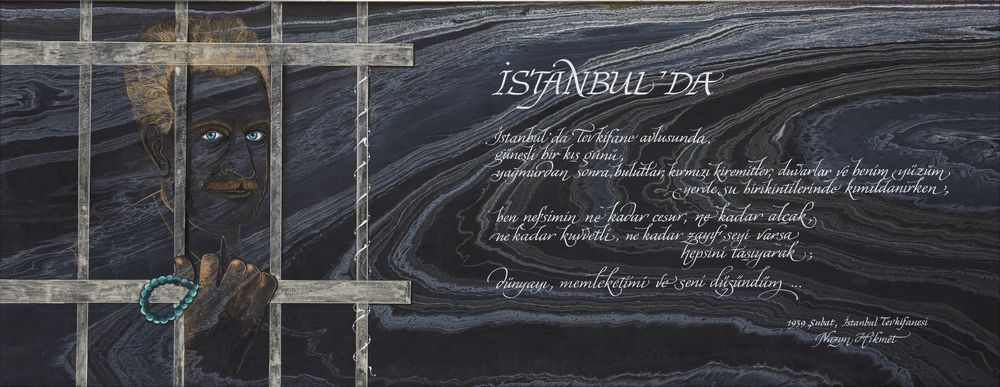 İSTANBUL'DA
İstanbul'da Tevkifane avlusunda,
güneşli bir kış günü,
yağmurdan sonra, bulutlar, kırmızı kiremitler, duvarlar ve benim yüzüm,
yerde, su birikintilerinde kımıldanırken,
ben nefsimin ne kadar cesur, ne kadar alçak,
ne kadar kuvvetli, ne kadar zayıf şeyi varsa
hepsini taşıyarak;
dünyayı, memleketimi ve seni düşündüm ...
1939 Şubat, İstanbul Tevkifanesi
Nazım Hikmet